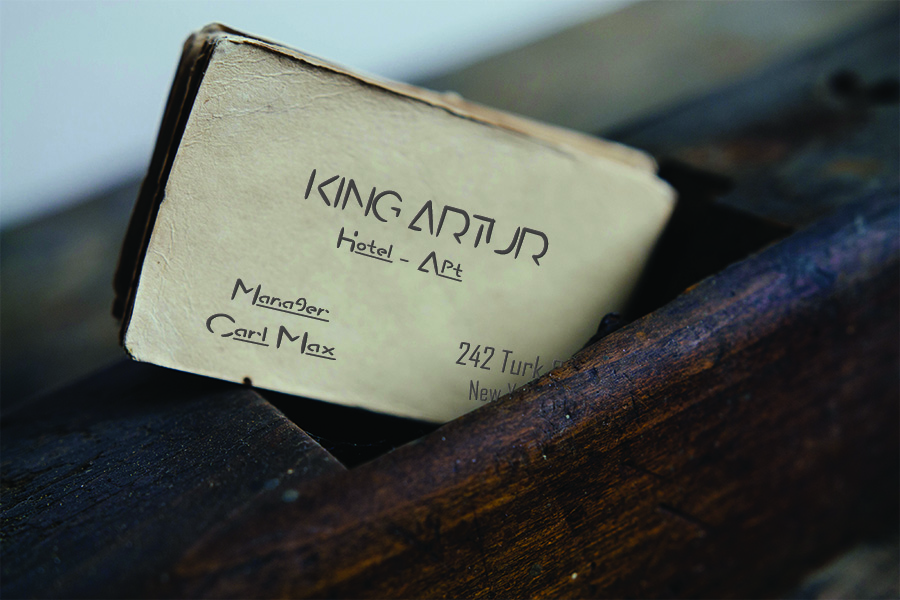 KING ARTUR
Hotel - APt
Manager
Carl Max
242 Turk
New